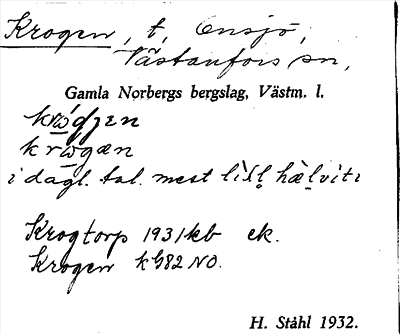 Krogen, t, Onsjö,
Västanfors sn,
Gamla Norbergs bergslag, Västm. l.
krɷ́dʒen
krɷ̀gæn
i dagl. tal. mest lìsḷ hæ̀lvitɩ
Krogtorp 1931 kb ek.
Krogen k482 NO.
H. Ståhl 1932.